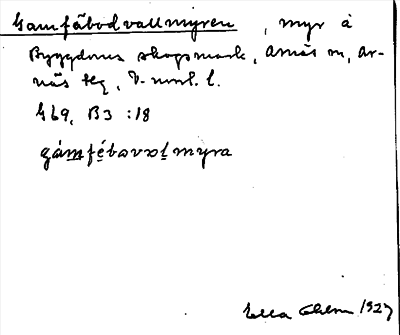 Gamfäbodvallmyren, myr å
Byggdoms skogsmark, Arnäs sn, Ar-
näs tg, V-norrl. l.
Gb9, B3 :18
gámfèbɷvɷl myra
Ella Ohlson 1927